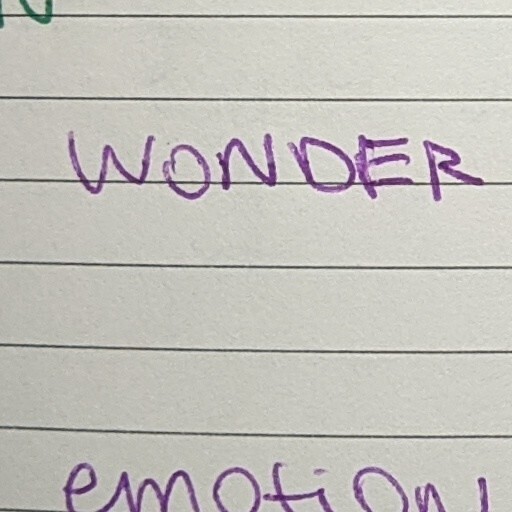 WONDER
emotion